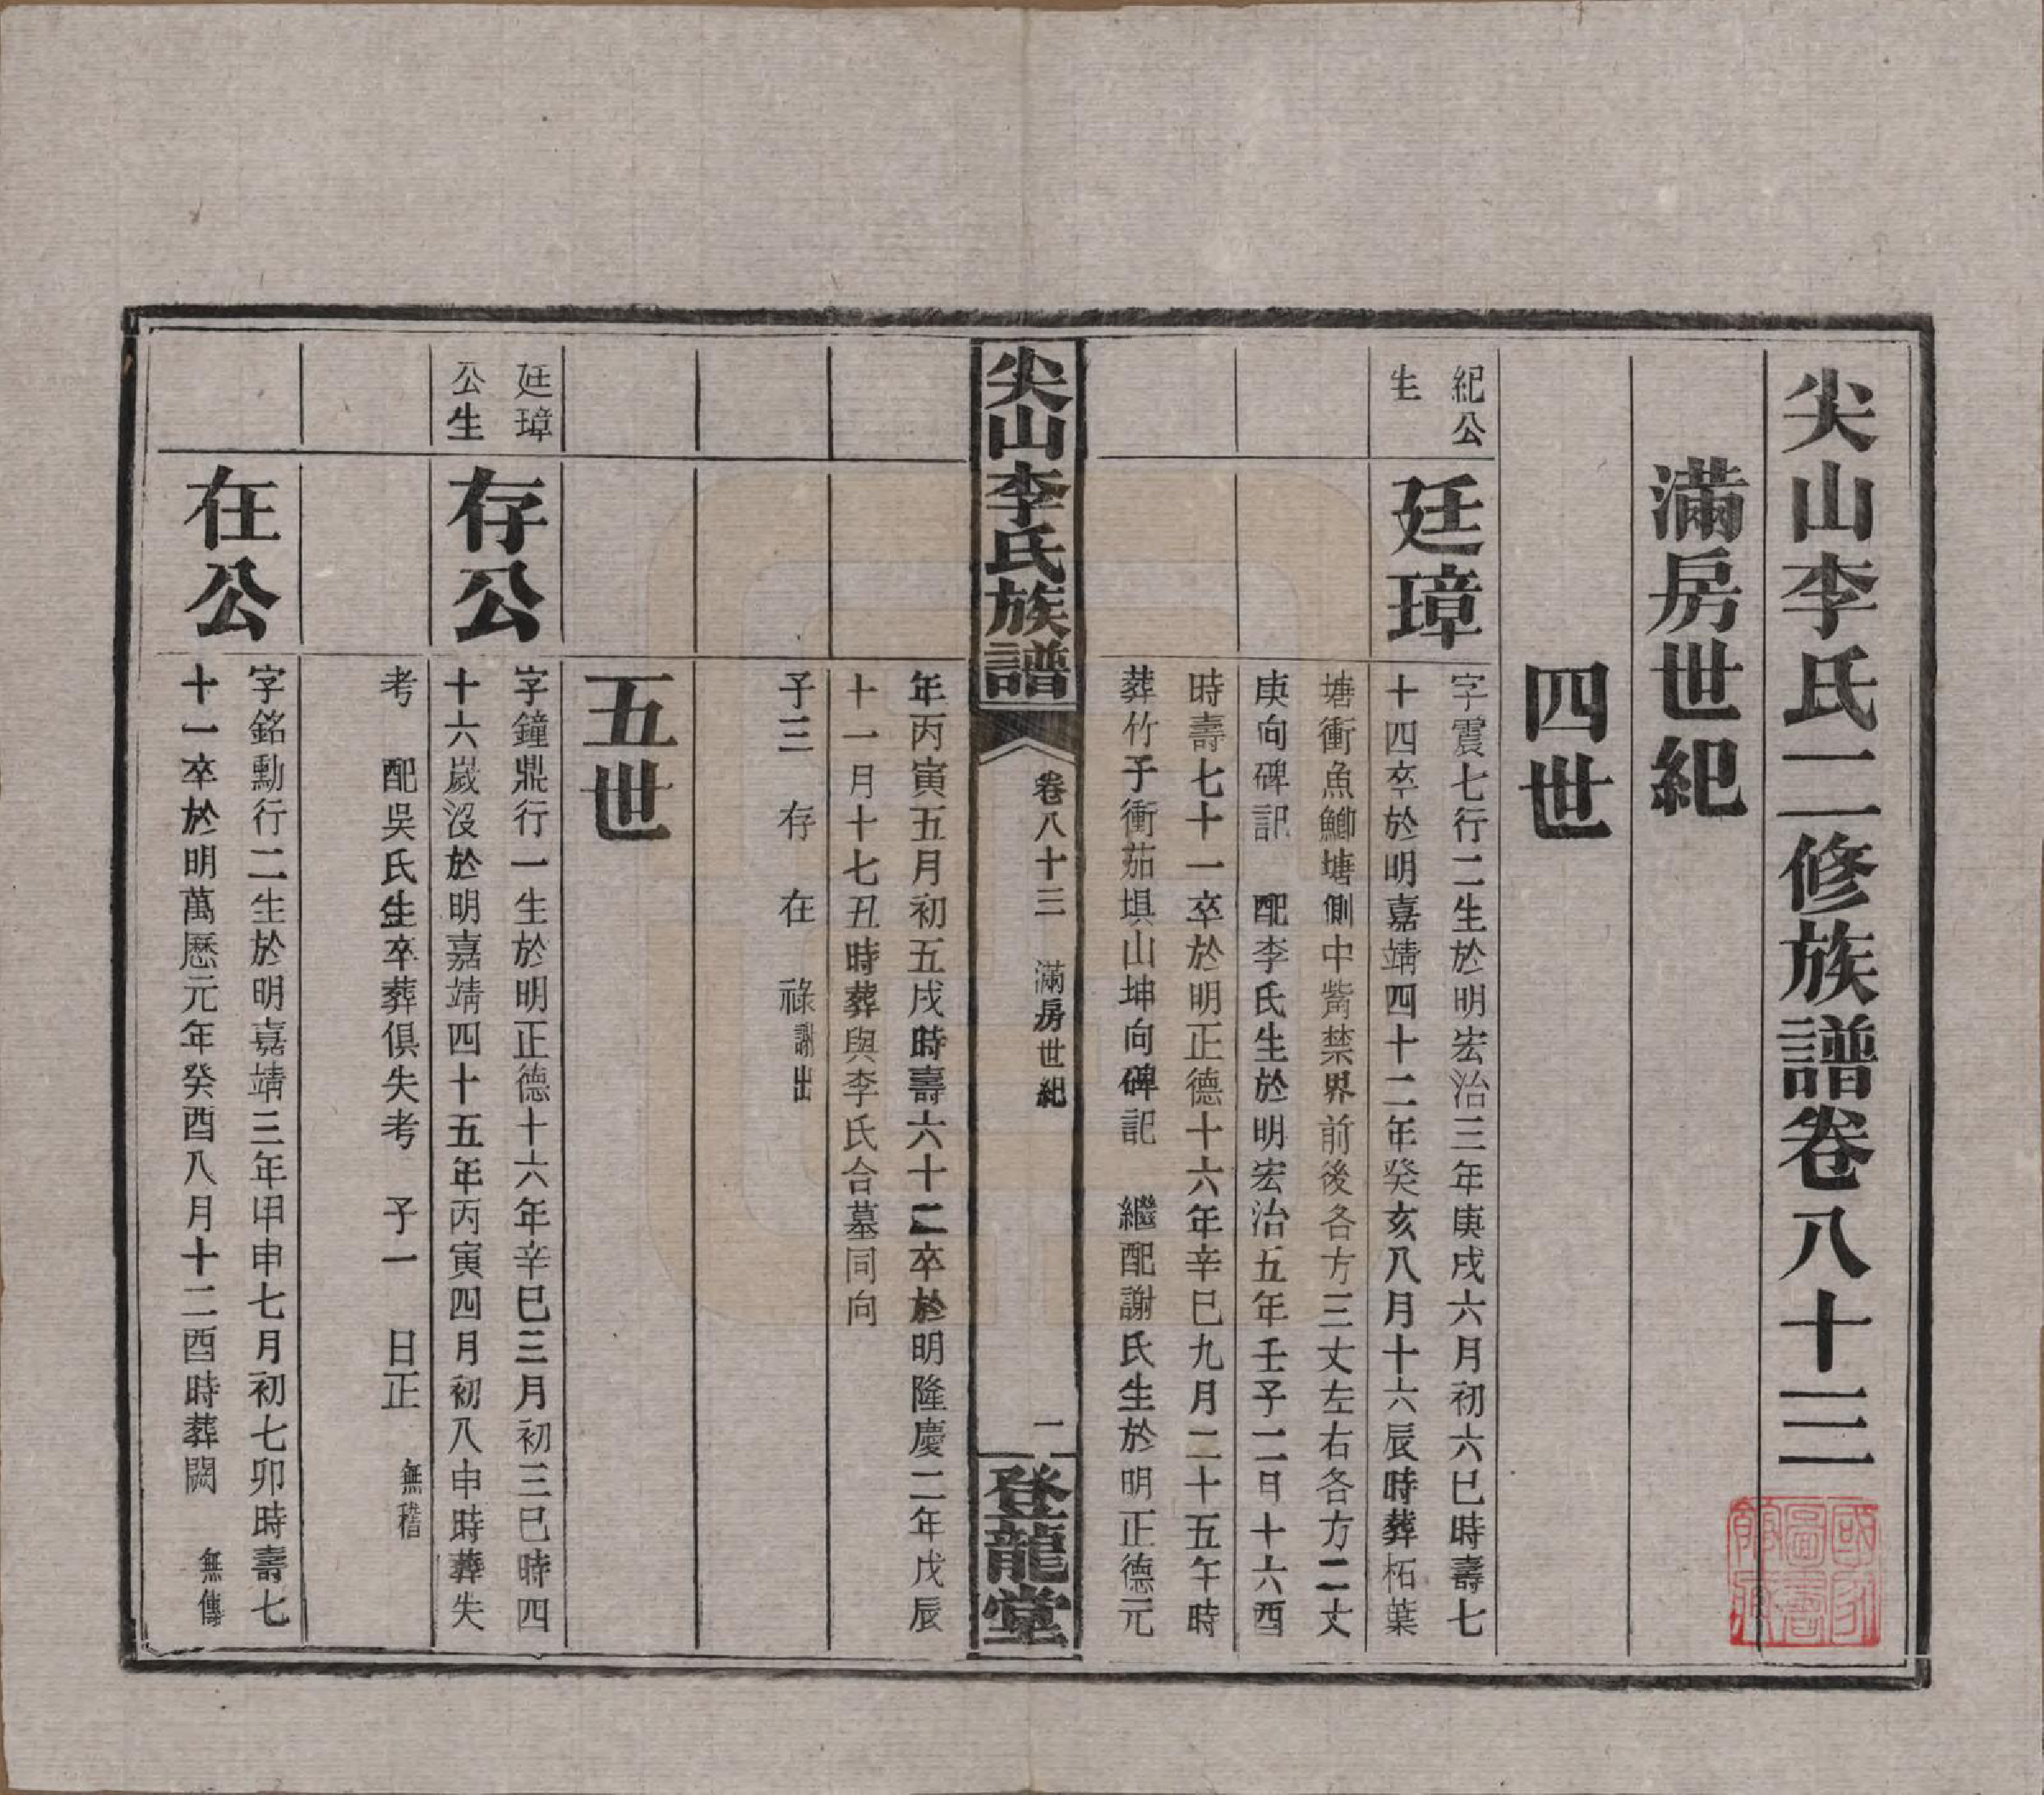 尖山李氏二修族譜卷八十三
滿房世紀
四世
紀公
生
廷璋
字震七行二生於明宏治三年庚戌六月初六巳時壽七
十四卒於明嘉靖四十二年癸亥八月十六辰時葬柘葉
塘衝魚鯽塘側中嘴禁界前後各方三丈左右各方二丈
庚向碑記 配李氏生於明宏治五年壬子二日十六酉
時壽七十一卒於明正德十六年辛巳九月二十五午時
葬竹子衝茄埧山坤向碑記 繼配謝氏生於明正德元
尖山李氏族譜
卷八十三 滿房世紀
一
登龍堂
年丙寅五月初五戌時壽六十二卒於明隆慶二年戊辰
十一月十七丑時葬與李氏合墓同向
子三 存 在 祿謝出
五世
廷璋
公生
存公
字鐘鼎行一生於明正德十六年辛巳三月初三巳時四
十六歲沒於明嘉靖四十五年丙寅四月初八申時葬失
考 配吳氏生卒葬俱失考 子一 日正 無稽
在公
字銘勳行二生於明嘉靖三年甲申七月初七卯時壽七
十一卒於明萬歷元年癸酉八月十二酉時葬闕 無傳
國家
圖書
館藏